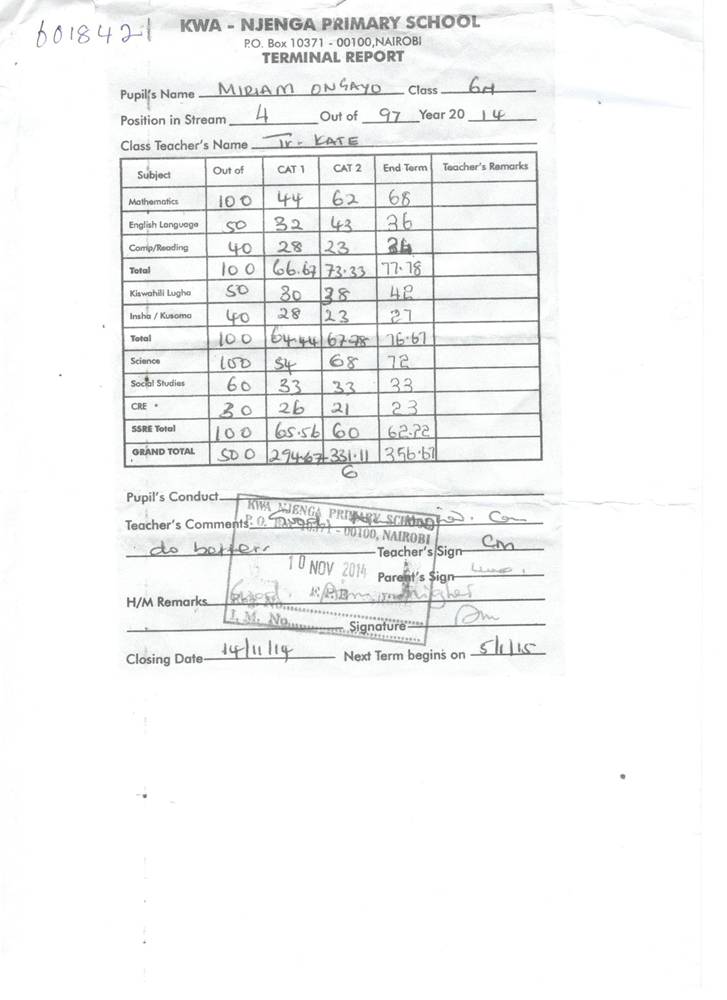 6018421
KWA - NJENGA PRIMARY SCHOOL
P.O. Box 10371 - 00100,NAIROBI
TERMINAL REPORT
Pupil's Name MIRIAM ONGAYO Class 6H
Position in Stream 4 Out of 97 Year 20 14
Class Teacher's Name Tr. KATE
Subject Out of CAT 1 CAT 2 End Term Teacher's Remarks
Mathematics 100 44 62 68
English Language 50 32 43 36
Comp/Reading 40 28 23
Total 100 66.67 73.33 77.78
Kiswahili Lugha 50 30 38 42
Insha / Kusoma 40 28 23 27
Total 100 64.44 67.78 76.67
Science 100 54 68 72
Social Studies 60 33 33 33
CRE 30 26 21 23
SSRE Total 100 65.56 60 62.22
GRAND TOTAL 500 294.67 331.11 356.67
6
Pupil's Conduct
KWA NJENGA PRIMARY SCHOOL
Teacher's Comments: Can
P.O. 10371 - 00100, NAIROBI
do better. Teacher's Sign
10 NOV 2014
Parent's Sign
H/M Remarks higher
I.M. No.
Signature
Closing Date 14/11/14 Next Term begins on 5/1/15